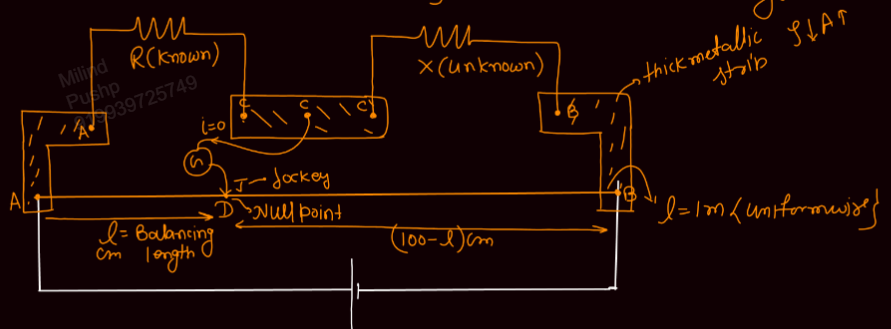 R(Known)
X(unknown)
thick metallic ρ↓A↑
strip
Milind
Pushp
919939725749
A
C C C
B
i=0
G
J - Jockey
A
B
D Null point
l = 1m {uniform wire}
l = Balancing
cm length
(100-l)cm